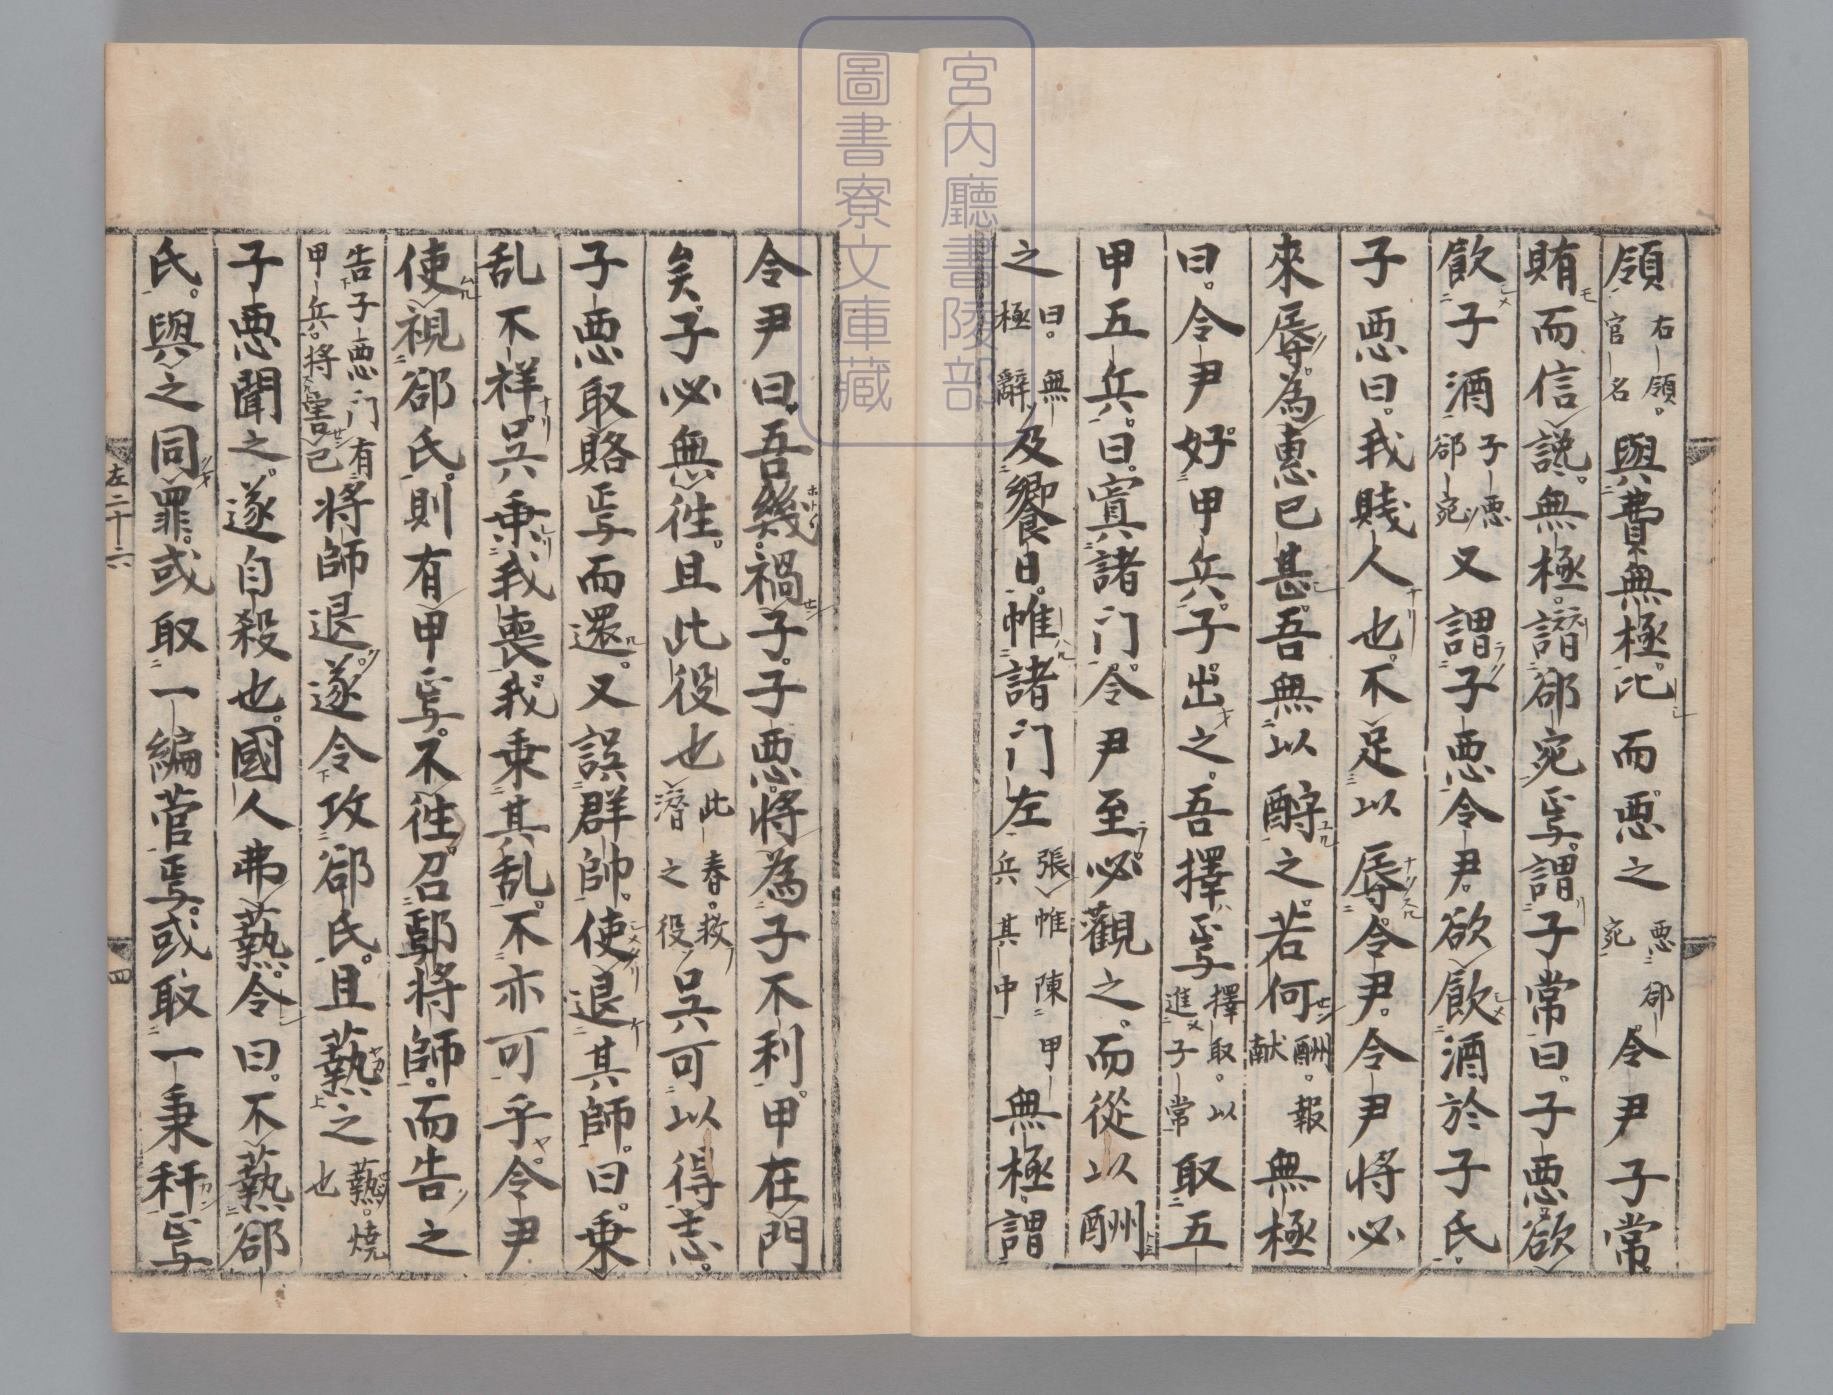 領右領官名與費無極比而惡之惡郤宛令尹子常
賄而信讒無極譖郤宛焉謂子常曰子惡欲
飲子酒子惡郤宛又謂子惡令尹欲飲酒於子氏
子惡曰我賤人也不足以辱令尹令尹將必
來辱為惠已甚吾無以酧之若何酬報献無極
曰令尹好甲兵子出之吾擇焉擇取以進子常取五
甲五兵曰寘諸门令尹至必觀之而從以酬
之曰無極辭及饗日帷諸门左張帷陳甲兵其中無極謂
令尹曰吾幾禍子子惡將為子不利甲在門
矣子必無徃且此役也此春救濳之役吴可以得志
子惡取賂焉而還又誤群帥使退其師曰乗
乱不祥吴乗我喪我乗其乱不亦可乎令尹
使視郤氏則有甲焉不徃召鄢将師而告之
告子惡门有甲兵将害己將師退遂令攻郤氏且爇之爇燒也
子惡聞之遂自殺也國人弗爇令曰不爇郤
氏與之同罪或取一編菅焉或取一秉秆焉
左二十六
四
宮内廳書陵部
圖書寮文庫藏